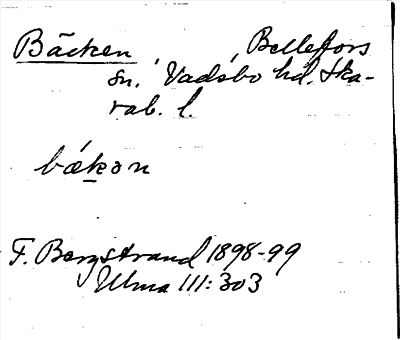 Bäcken, Bellefors
sn. Vadsbo hd. Ska-
rab. l.
bækon
F. Bergstrand 1898-99
Ulma 111:303